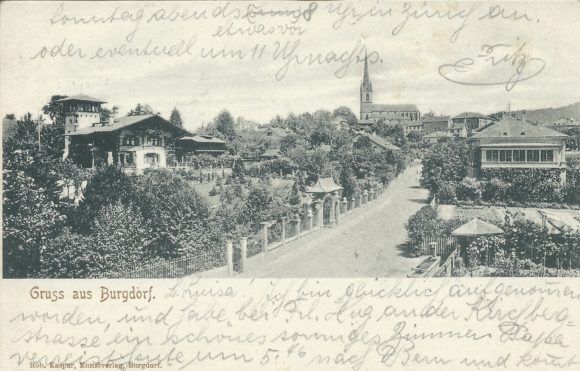 Sonntag abend Uhr in Zürich an.
etwas vor
oder eventuell um 11 Uhr nachts.
Fritz
Gruss aus Burgdorf.
Louisa. Ich bin glücklich aufgenommen
worden, und habe bei Frl. Hug an der Kirchberg-
strasse ein schönes sonniges Zimmer Papa
verreist heute um 5.46 nach Bern und kommt
Rob. Kaspar, Kunstverlag, Burgdorf.